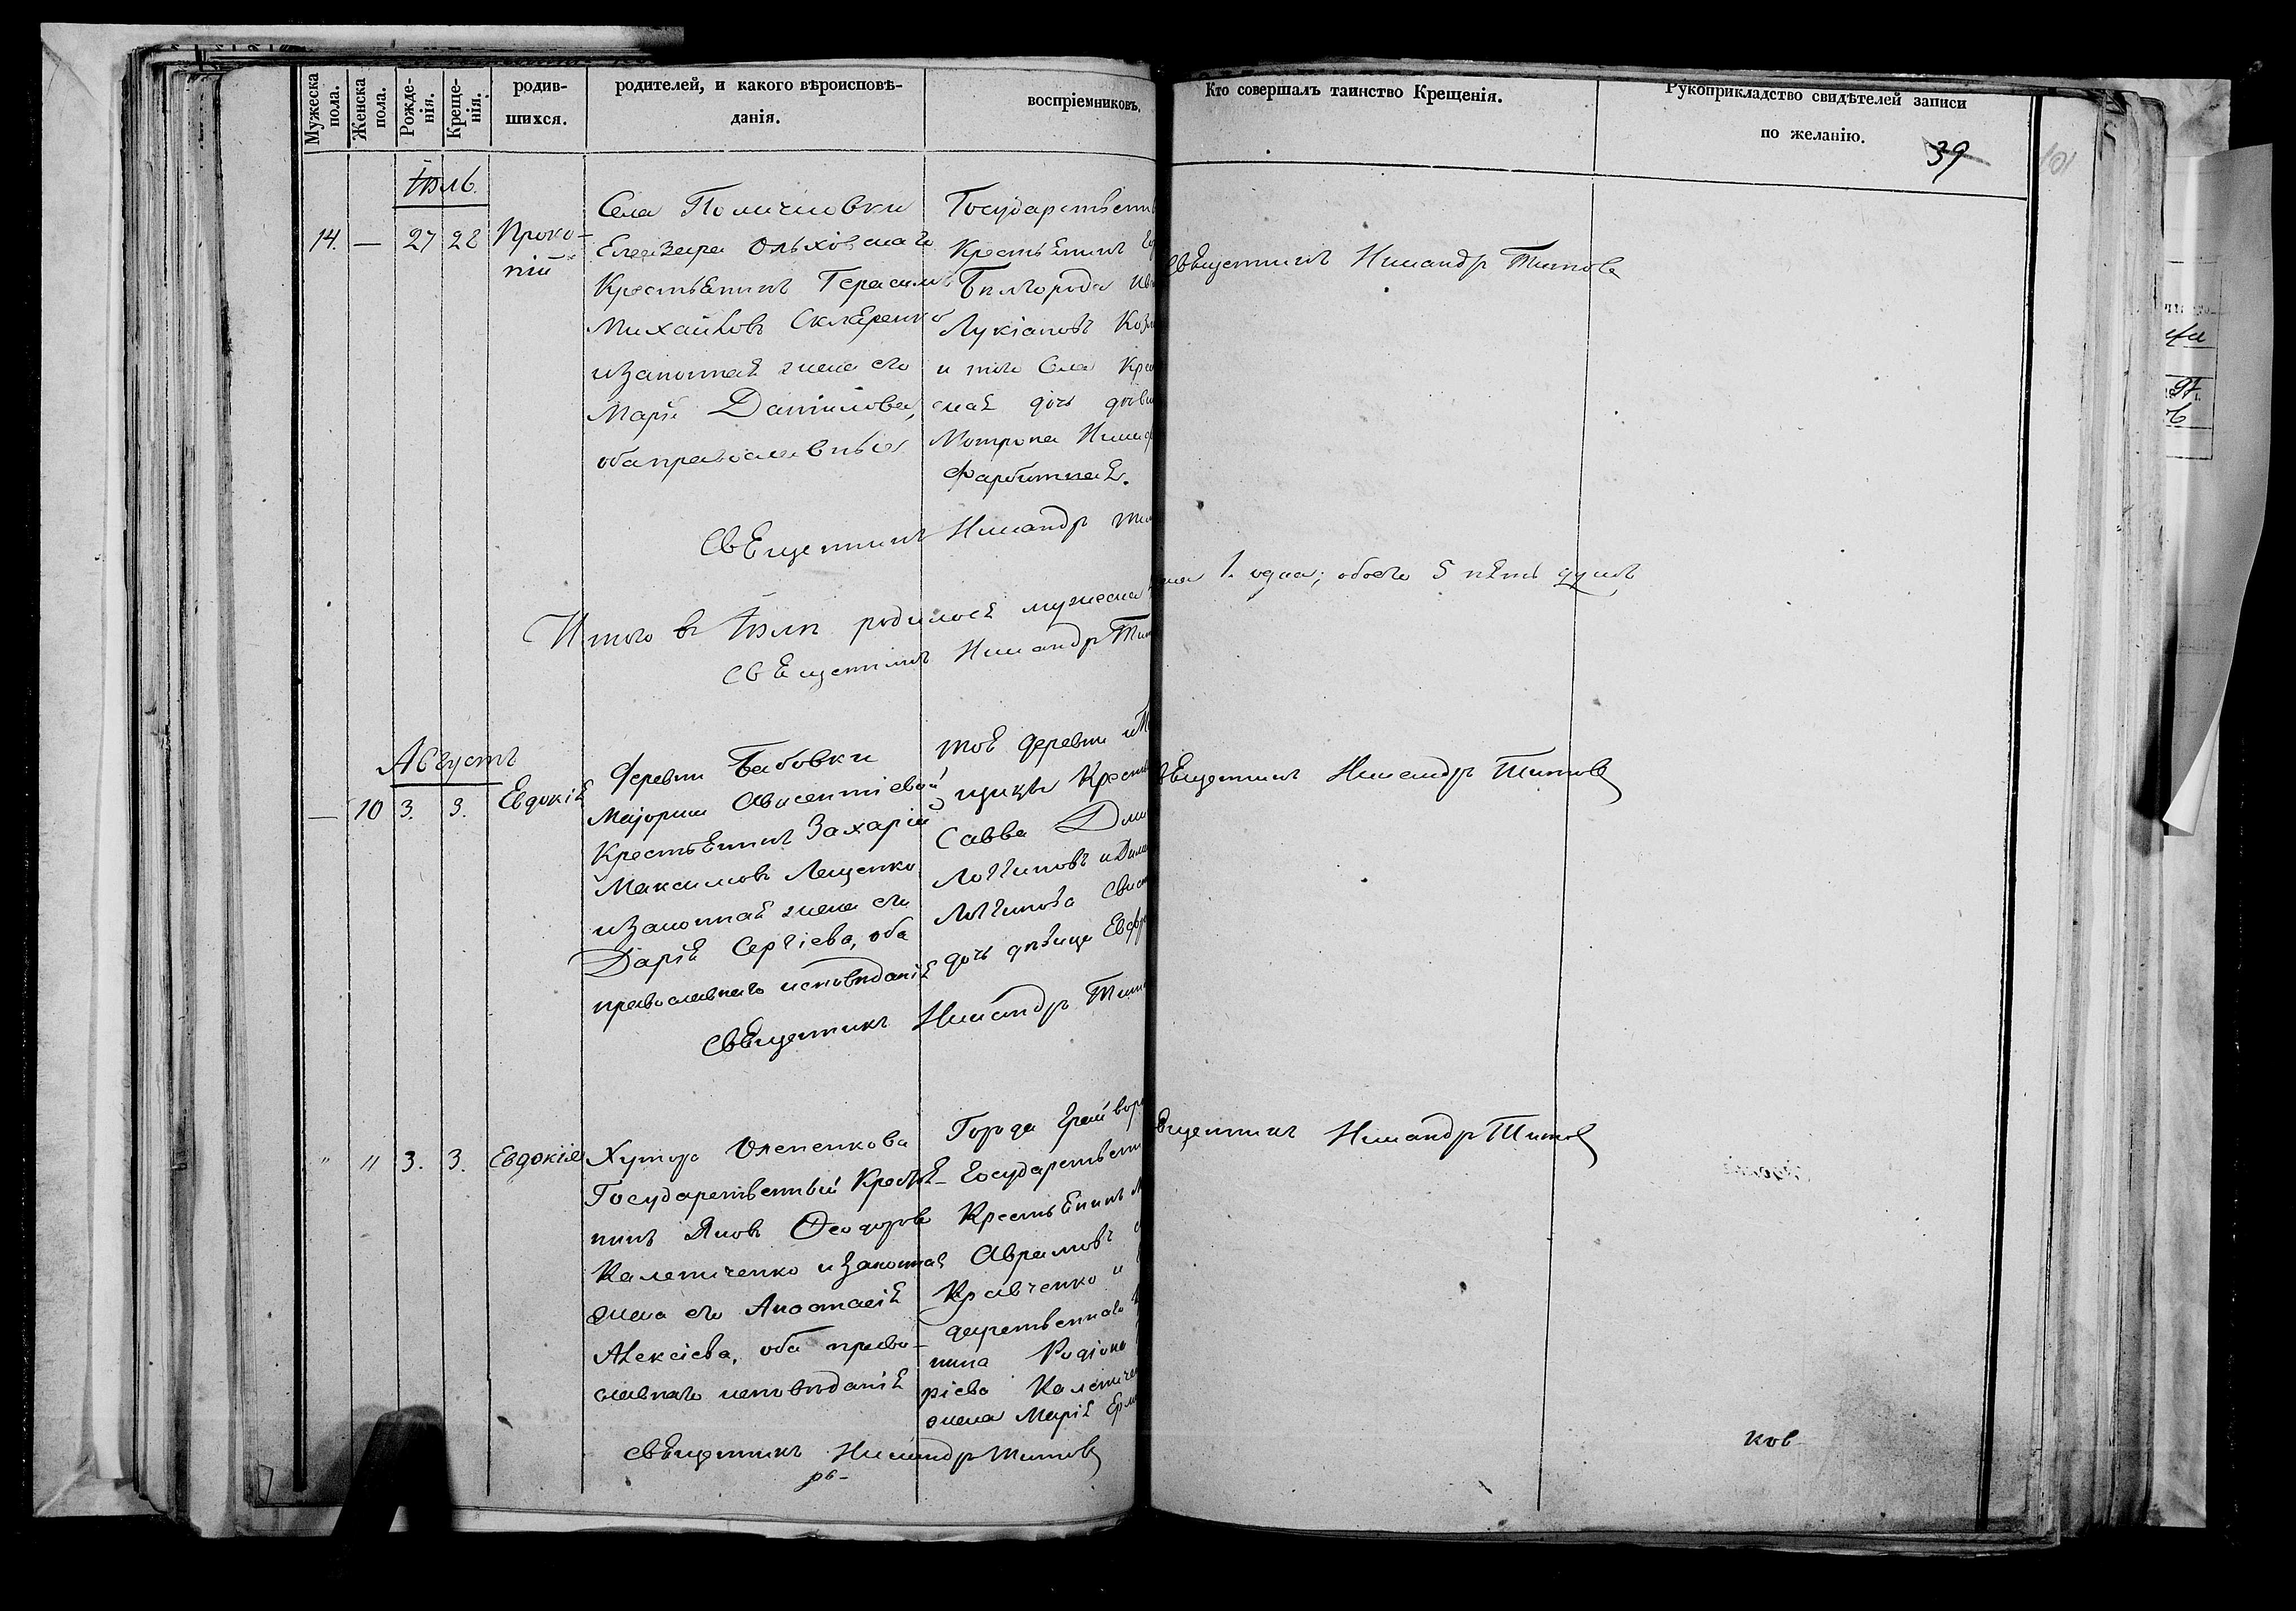 Мужеска пола.
Женска пола.
Рожде-
нія.
Креще-
нія.
родив-
шихся.
родителей, и какого вѣроисповѣ-
данія.
воспріемниковъ.
Кто совершалъ таинство Крещенія.
Рукоприкладство свидѣтелей записи
по желанію.
39
101
Іюль.
14. — 27 28 Проко-
пій
Села
Ольховскаго
Крестьянинъ Герасимъ
Михайловъ Скляренко
и законная жена его
Марія Даніилова,
оба православные
Государствен
Крестьянинъ
Билгорода
Лукіановъ
и того Села
дочь
Мотрона
Фарбитная.
Священникъ Никандръ
Священникъ Никандръ Титовъ
Итого въ Іюлѣ родилось мужеска
1. одна; обоего 5 пять душъ
Священникъ Никандръ
Августъ
— 10 3. 3. Евдокія
Деревни Бабовки
Маіорши Авксентіевой
Крестьянинъ Захарій
Максимовъ Лещенко
и законная жена его
Дарія Сергіева, оба
православнаго исповѣданія
тоя деревни
Савва
Логгиновъ
Логгинова
дочь дѣвица
Священникъ Никандръ
Священникъ Никандръ Титовъ
" " 3. 3. Евдокія
Хутора
Государственный Крестья-
нинъ Яковъ Ѳеодоровъ
Калениченко и законная
жена его Анастасія
Алексіева, оба право-
славнаго исповѣданія
Города
Государствен
Крестьянинъ
Аврамовъ
Кравченко и
дарственнаго
нина Родіона
ріева
жена Марія
Священникъ Никандръ Титовъ
Никандръ Титовъ
ков